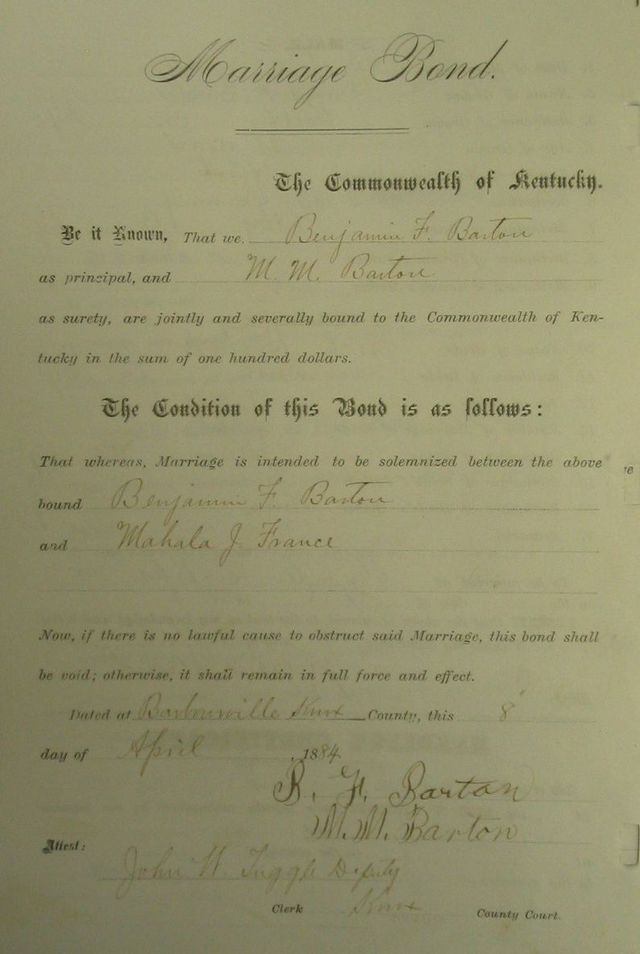 Marriage Bond.
The Commonwealth of Kentucky.
Be it Known, That we, Benjamin F. Barton
as principal, and M. M. Barton
as surety, are jointly and severally bound to the Commonwealth of Ken-
tucky in the sum of one hundred dollars.
The Condition of this Bond is as follows:
That whereas, Marriage is intended to be solemnized between the above
bound Benjamin F. Barton
and Mahala J. France
Now, if there is no lawful cause to obstruct said Marriage, this bond shall
be void; otherwise, it shall remain in full force and effect.
Dated at Barbourville Knox County, this 8
day of April, 1884
B. F. Barton
M. M. Barton
Attest:
John W. Tuggle Deputy
Clerk Knox County Court.